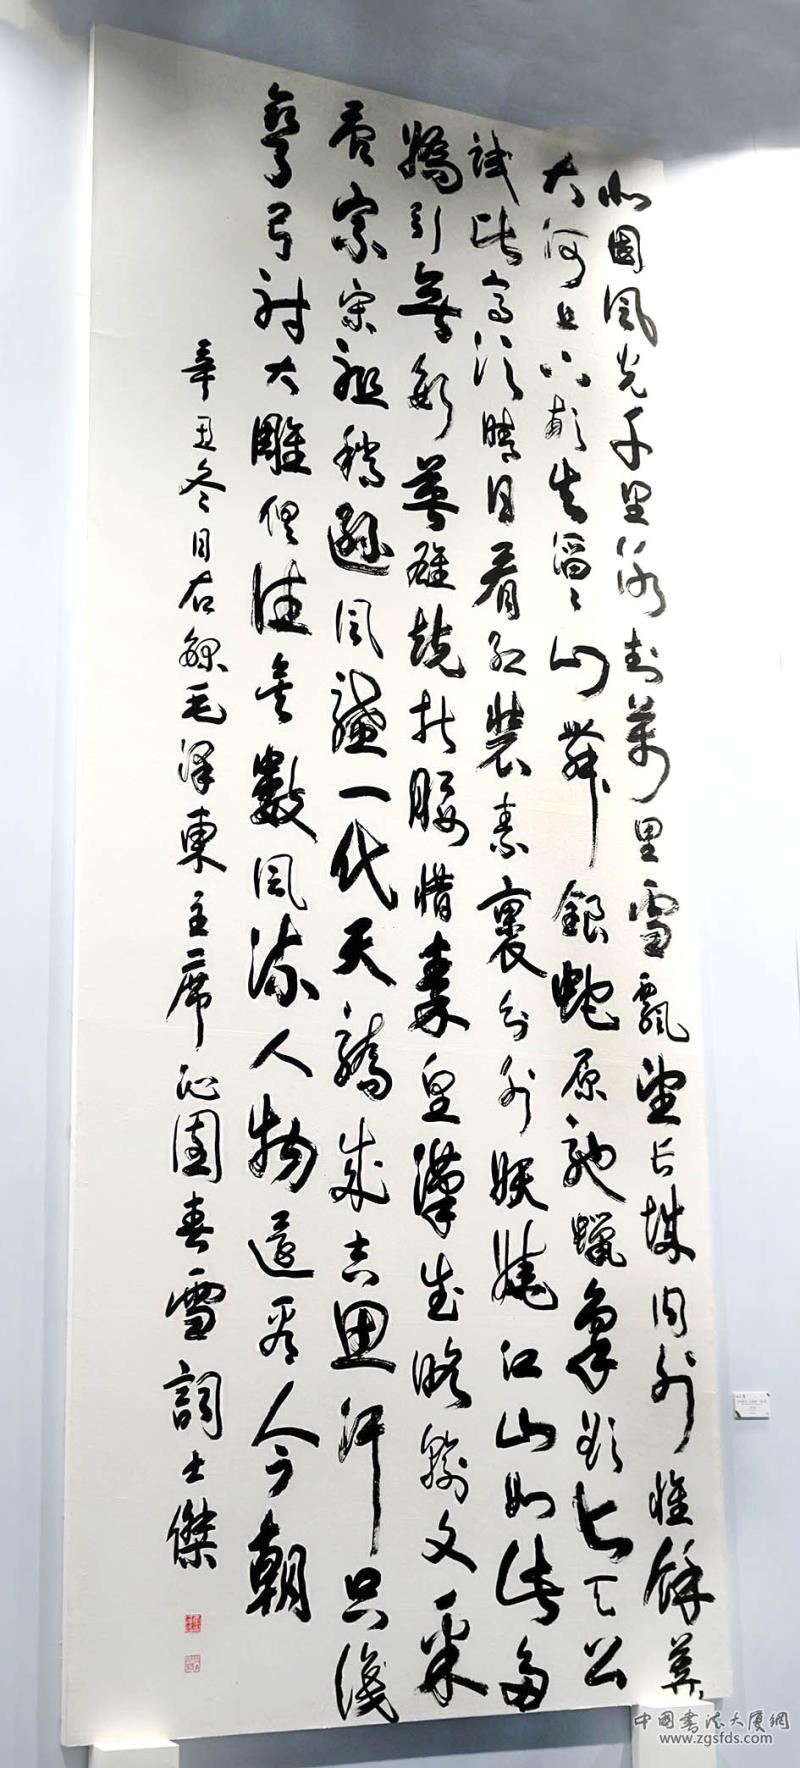 北國風光千里冰封萬里雪飄望長城内外惟餘莽々
大河上下頓失滔々山舞銀蛇原馳蠟象欲與天公
試比高須晴日看紅裝素裹分外妖嬈江山如此多
嬌引無數英雄競折腰惜秦皇漢武略輸文采
唐宗宋祖稍遜風騷一代天驕成吉思汗只識
彎弓射大雕俱往矣數風流人物還看今朝
辛丑冬月右錄毛澤東主席沁園春雪詞士傑
中國書法大廈網
www.zgsfds.com